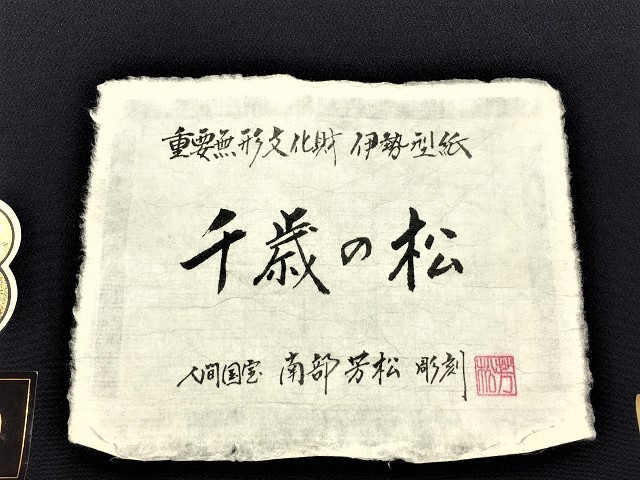 重要無形文化財 伊勢型紙
千歳の松
人間国宝 南部芳松 彫刻
芳松